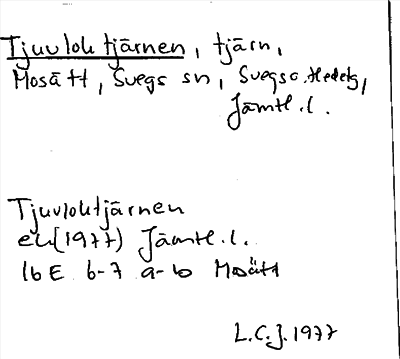 Tjuvloktjärnen, tjärn,
Mosätt, Svegs sn,
Jämtl. l.
Tjuvloktjärnen
ek (1977) Jämtl. l.
16E 6-7 a-b Mosätt
L.C.J. 1977